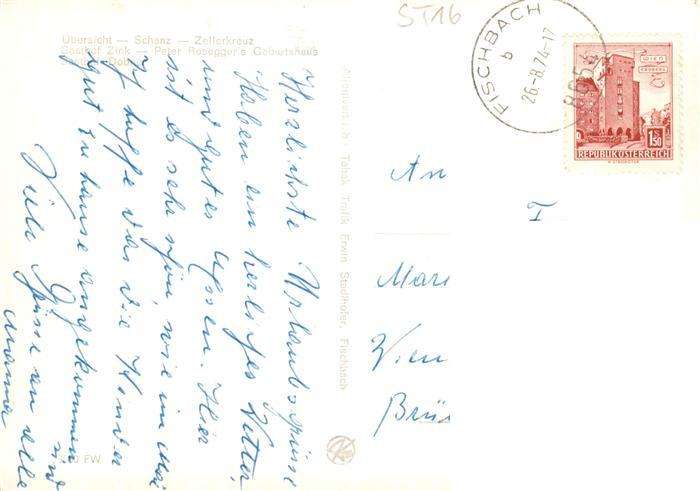 Übersicht — Schanz — Zellerkreuz
Gasthof Zink — Peter Rosegger's Geburtshaus
ST16
FISCHBACH
b
26.-8.74-17
8654
WIEN
1.50
REPUBLIK ÖSTERREICH
Herzlichste Urlaubsgrüsse
Haben ein herliches Wetter
und gutes Essen. Hier
ist es sehr schön, wie im Mai
Ich hoffe das die Kinder
gut zu hause angekommen
sind
Viele Grüsse an alle
An
I
Mar
Wien
Brü
Tabak Trafik Erwin Stadlhofer, Fischbach
FW